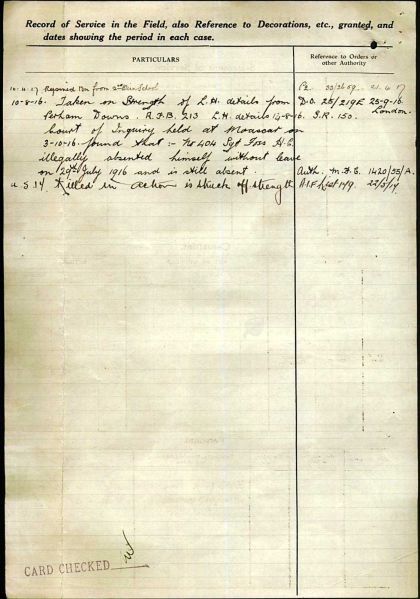 Record of Service in the Field, also Reference to Decorations, etc., granted, and
dates showing the period in each case.
PARTICULARS
Reference to Orders or
other Authority
10.4.17 Rejoined Bn from School 21.4.17
10-8-16. Taken on Strength of L.H. details from D.O. 25/219E 25-9-16.
Perham Downs. A.F.B. 213 L.H. details 14-8-16. S.R. 150. London.
Court of Inquiry held at Moascar on
3-10-16. found that :- No 404 Sgt Foss H.C.
illegally absented himself without leave
on 29th July 1916 and is still absent. Auth. 1420/35/A.
Killed in action is struck off strength A.I.F. List 149. 22/5/17
CARD CHECKED